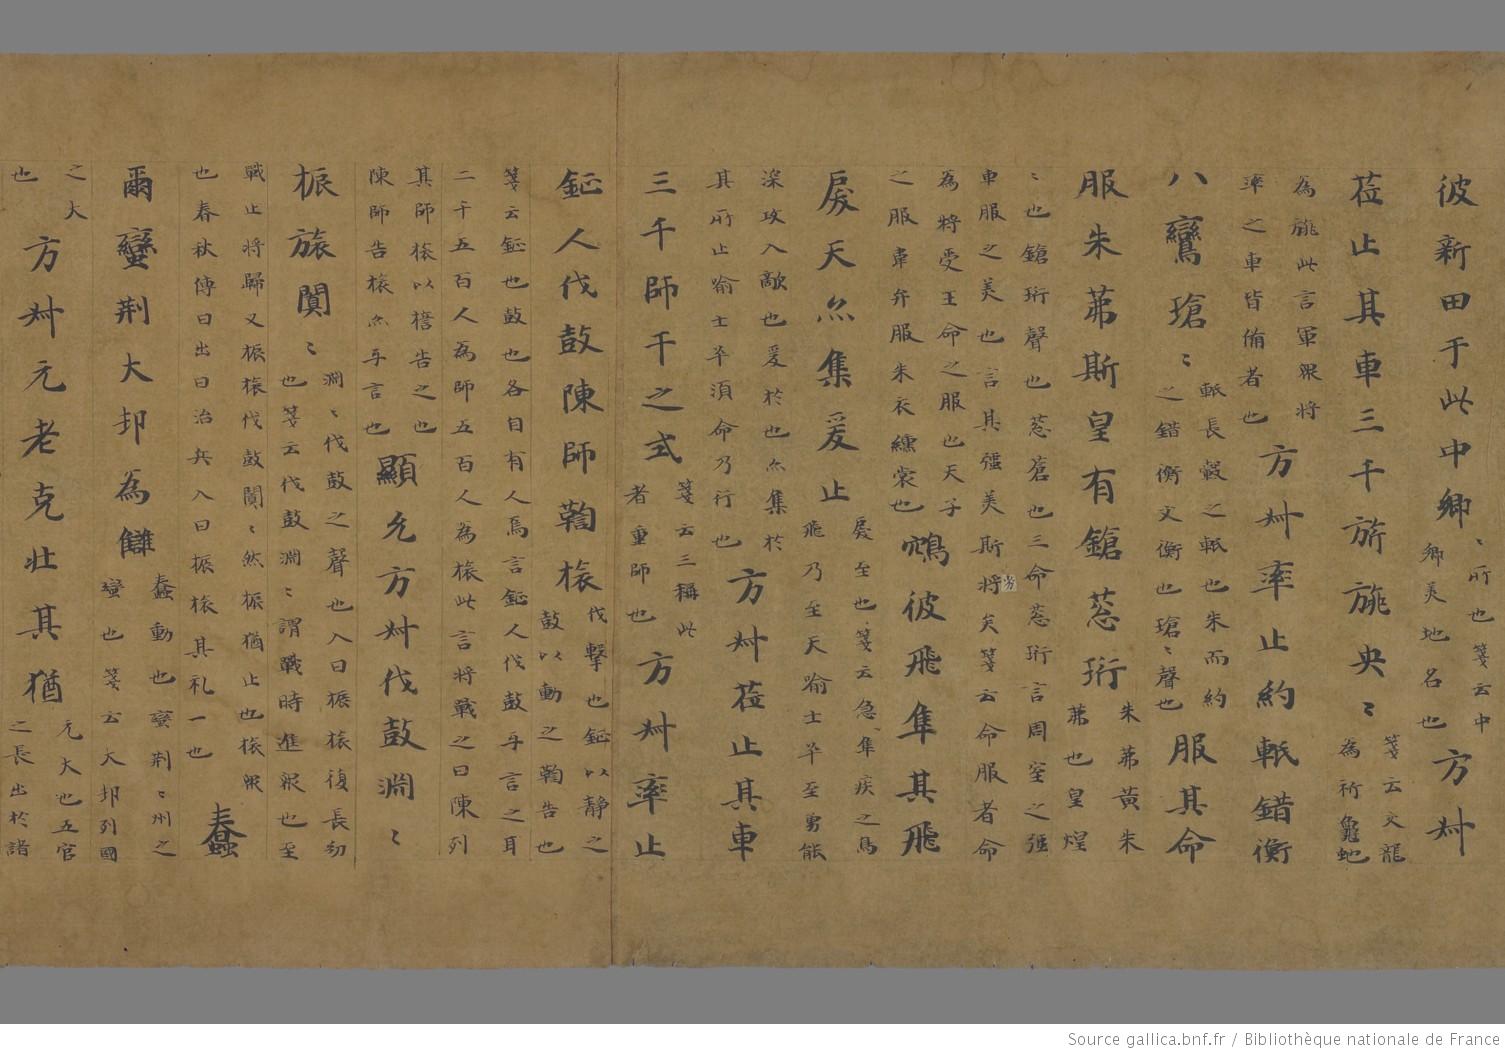 彼新田于此中卿
ゝ所也箋云中
卿美地名也
方叔
莅止其車三千旂旐央ゝ
箋云交龍
為旂龜虵
為旐此言軍衆將
率之車皆俻者也
方叔率止約軝錯衡
八鸞瑲ゝ
軝長轂之軝也朱而約
之錯衡文衡也瑲ゝ聲也
服其命
服朱茀斯皇有鎗䓤珩
朱茀黄朱
茀也皇煌
ゝ也鎗珩聲也䓤蒼也三命䓤珩言周室之彊
車服之美也言其彊美斯將劣矣箋云命服者命
為將受王命之服也天子
之服韋弁服朱衣纁裳也
鴥彼飛隼其飛
戾天亦集爰止
戾至也箋云急隼疾之鳥
飛乃至天喻士卒至勇能
深攻入敵也爰於也亦集於
其所止喻士卒須命乃行也
方叔莅止其車
三千師干之式
箋云三稱此
者重師也
方叔率止
鉦人伐鼓陳師鞫旅
伐擊也鉦以静之
鼓以動之鞫告也
箋云鉦也鼓也各自有人焉言鉦人伐鼓乎言之耳
二千五百人為師五百人為旅此言將戰之日陳列
其師旅以誓告之也
陳師告旅亦乎言也
顯允方叔伐鼓淵ゝ
振旅闐ゝ
淵ゝ伐鼓之聲也入曰振旅復長幼
也箋云伐鼓淵ゝ謂戰時進衆也至
戰止將歸又振旅伐鼓闐ゝ然振猶止也旅衆
也春秋傳曰出曰治兵入曰振旅其礼一也
蠢
爾蠻荆大邦為讎
蠢動也蠻荆ゝ州之
蠻也箋云大邦列國
之大
也
方叔元老克壯其猶
元大也五官
之長出於諸
Source gallica.bnf.fr / Bibliothèque nationale de France